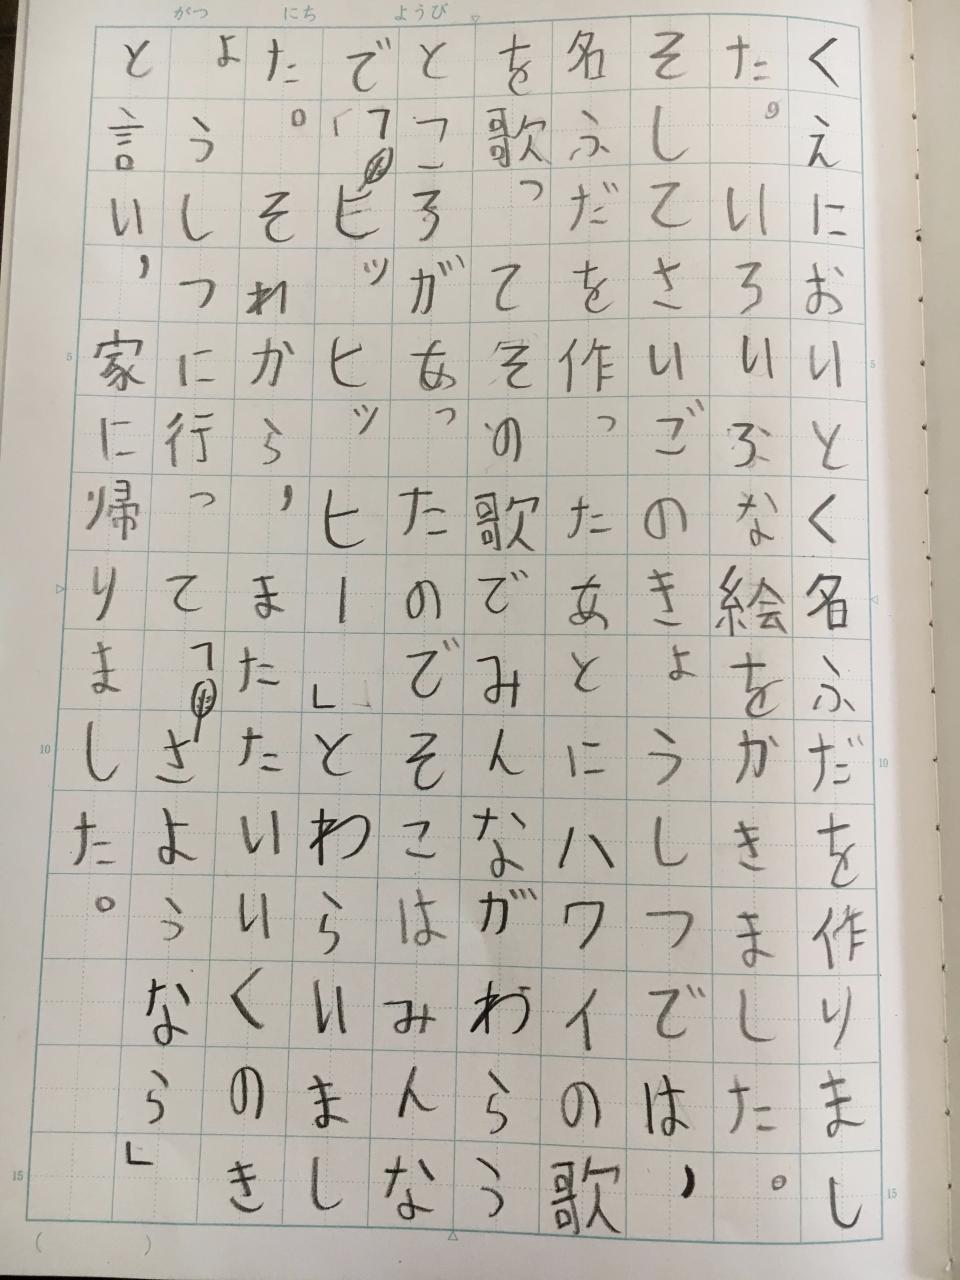 がつ にち ようび
くえにおいとく名ふだを作りまし
た。いろいろな絵をかきました。
そしてさいごのきょうしつでは、
名ふだを作ったあとにハワイの歌
を歌ってその歌でみんながわらう
ところがあったのでそこはみんな
で「ヒッヒッヒー」とわらいまし
た。それから、またたいいくのき
ょうしつに行って「さようなら」
と言い、家に帰りました。
5
10
15
5
10
15
(　　)